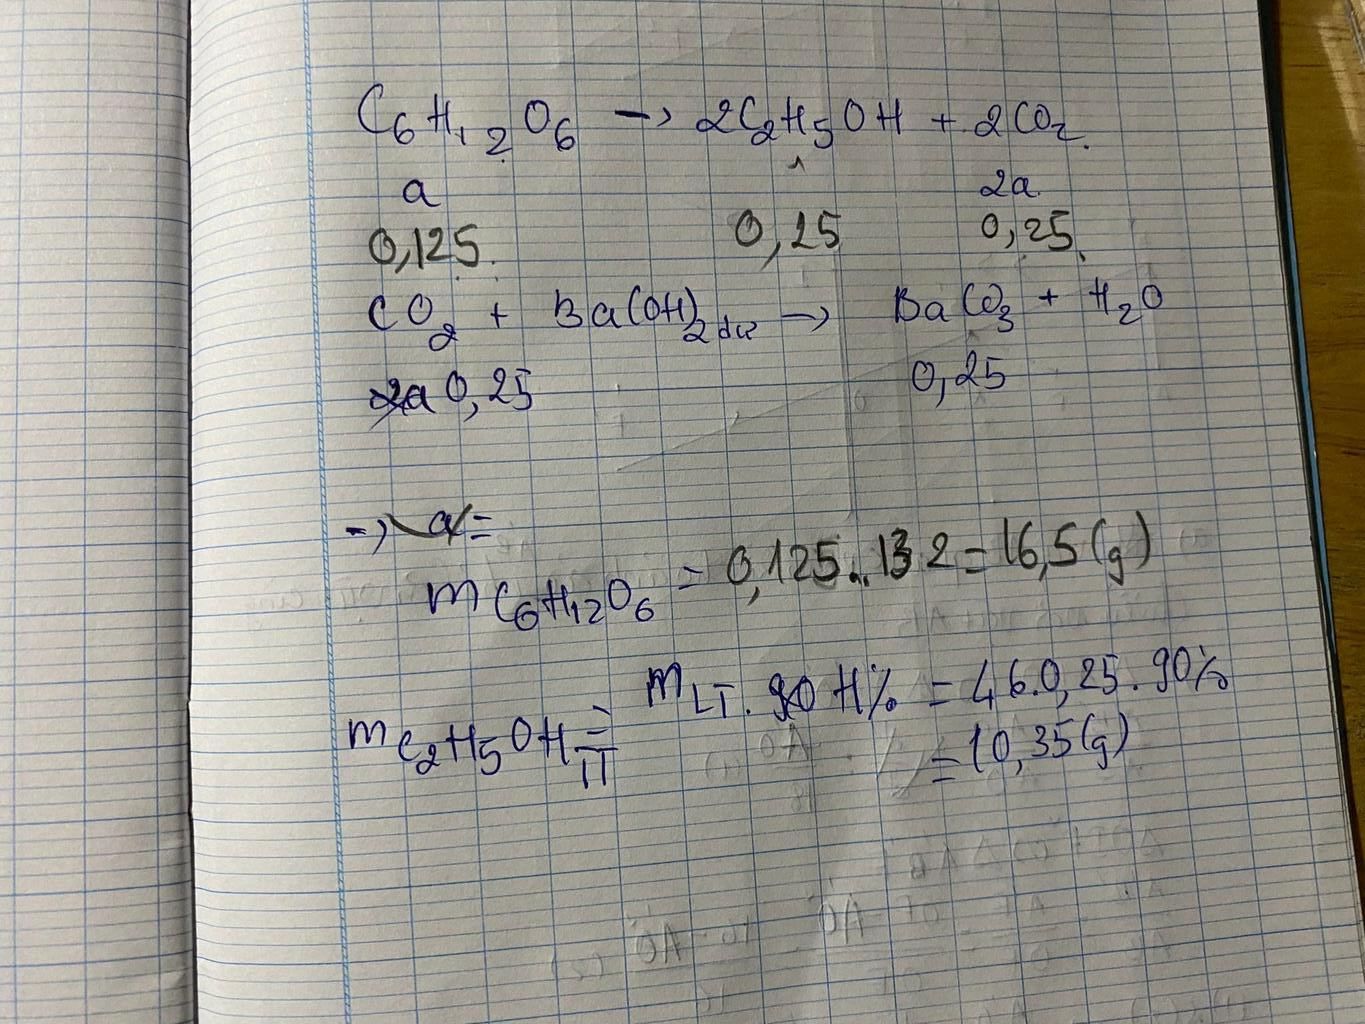 C₆H₁₂O₆ → 2C₂H₅OH + 2CO₂.
a 2a.
0,125. 0,25 0,25.
CO₂ + Ba(OH)₂ dư → BaCO₃ + H₂O
2a 0,25 0,25
→ a =
m C₆H₁₂O₆ = 0,125..132 = 16,5(g)
m C₂H₅OH TT = m LT. 90 H% = 46.0,25.90%
= 10,35(g)